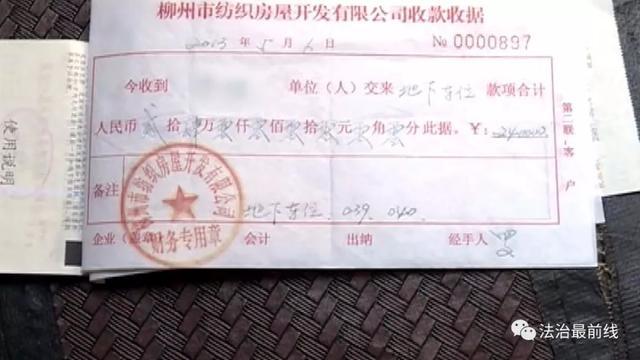 柳州市纺织房屋开发有限公司收款收据
2013 年 5 月 6 日 № 0000897
今收到 单位(人)交来 地下车位 款项合计
人民币 贰 拾 肆 万 零 仟 零 佰 零 拾 零 元 零 角 零 分此据。¥:240000
备注 地下车位 039. 040
企业(盖章) 会计 出纳 经手人
柳州市纺织房屋开发有限公司
财务专用章
第二联:客户
使用说明
法治最前线